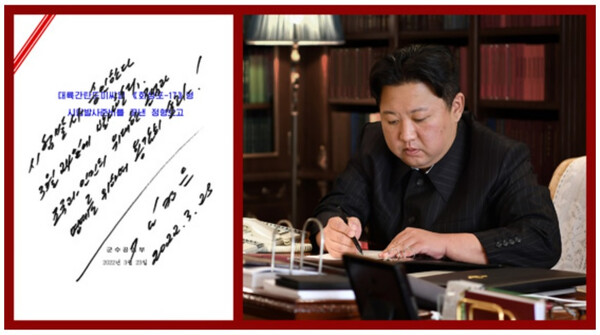 대륙간탄도미싸일 《화성포-17》형
시험발사준비를 끝낸 정형보고
시험발사 승인한다
3월 24일에 발사한다.
조국과 인민의 위대한 존엄과
명예를 위하여 용감히 쏘라!
김정은
2022. 3. 23
군수공업부
2022년 3월 23일